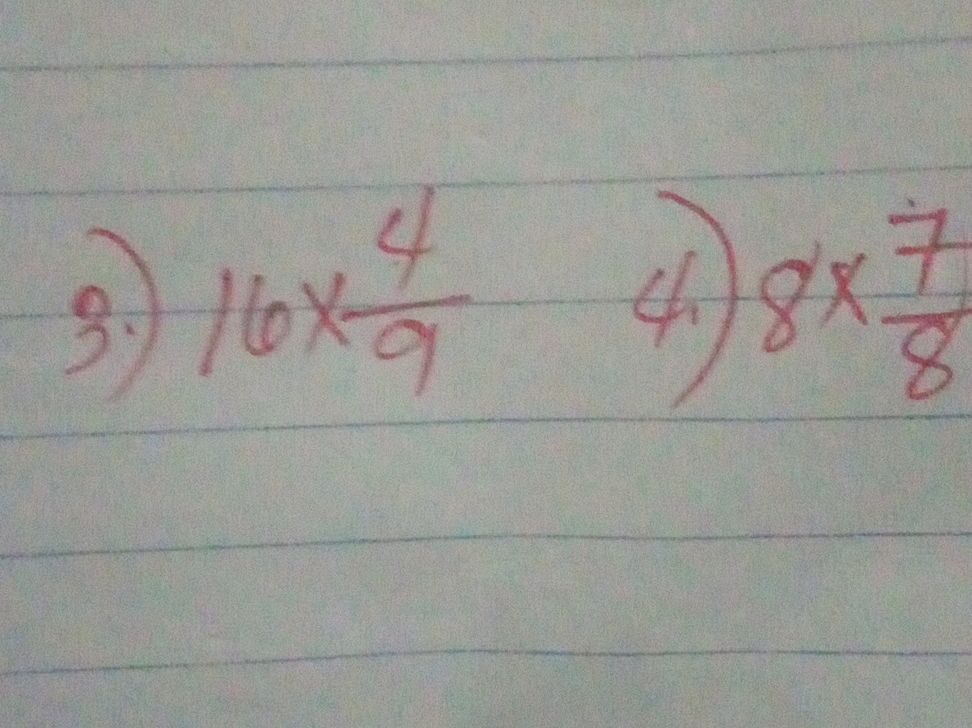 3.) 16 x 4/9 4.) 8 x 7/8